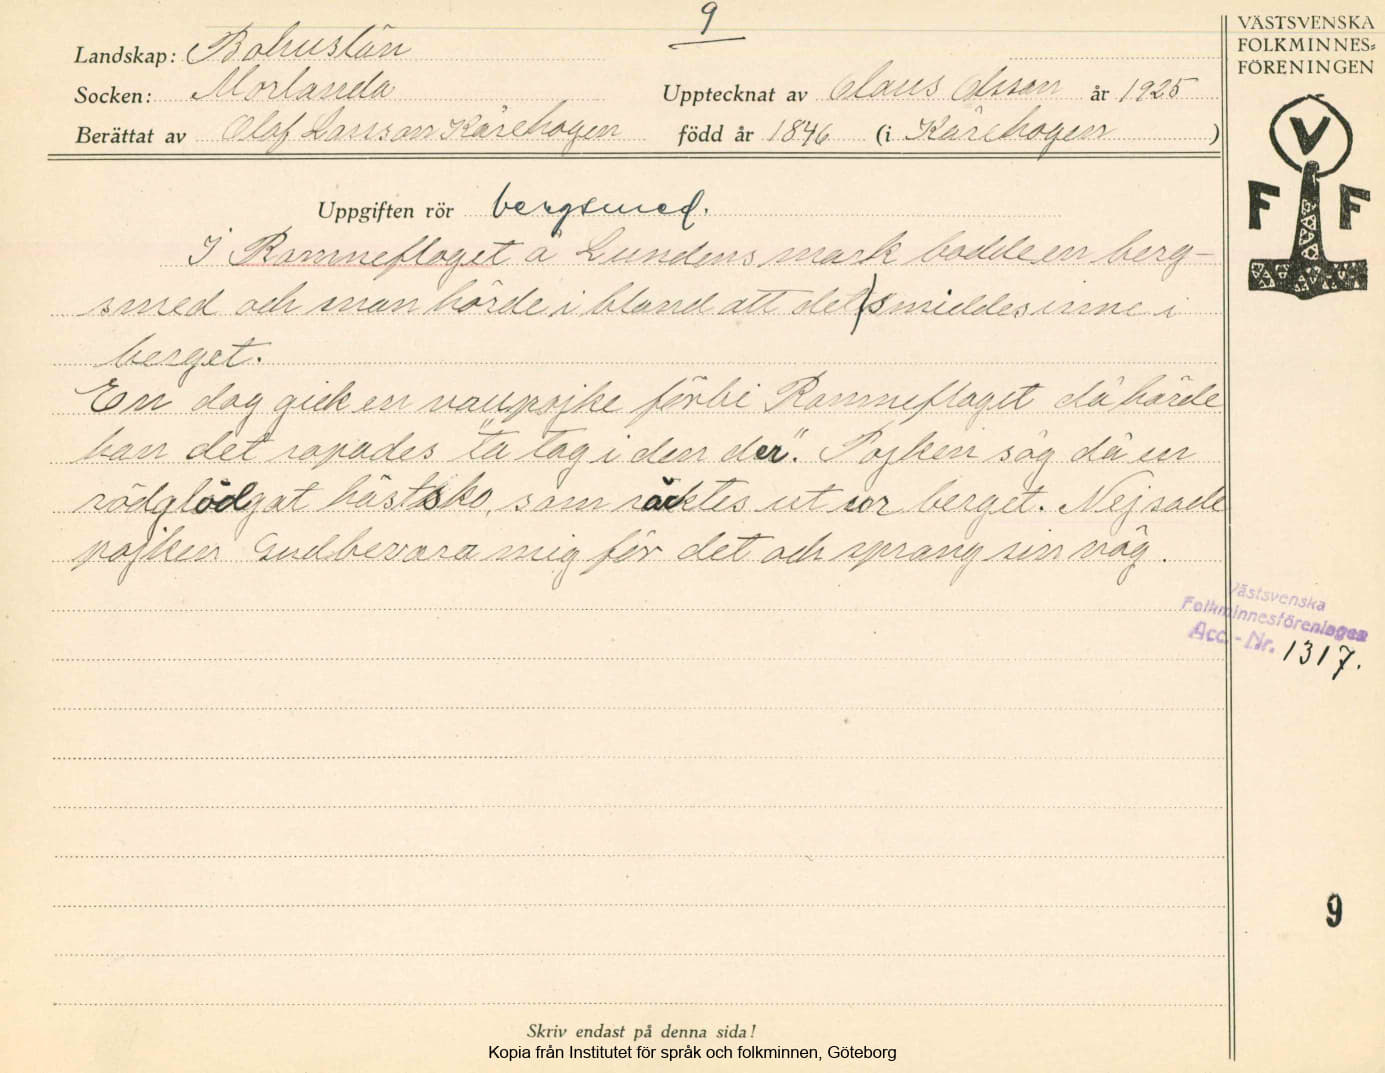 9
VÄSTSVENSKA
FOLKMINNES=
FÖRENINGEN
Landskap: Bohuslän
Socken: Morlanda
Upptecknat av Claus Olsson år 1925
Berättat av Olof Larsson Kärehogen född år 1846 (i Kärehogen )
V
F F
Uppgiften rör bergsmed.
I Ramneflaget å Lundens mark bodde en berg-
smed och man hörde i bland att det smiddes inne i
berget.
En dag gick en pojke förbi Ramneflaget då hörde
han det ropades "ta tag i den der". Pojken såg då en
rödglödgat hästsko, som räcktes ut ur berget. Nej sade
pojken Gud bevara mig för det och sprang sin väg.
Västsvenska
Folkminnesföreningen
Acc.-Nr. 1317.
9
Skriv endast på denna sida!
Kopia från Institutet för språk och folkminnen, Göteborg